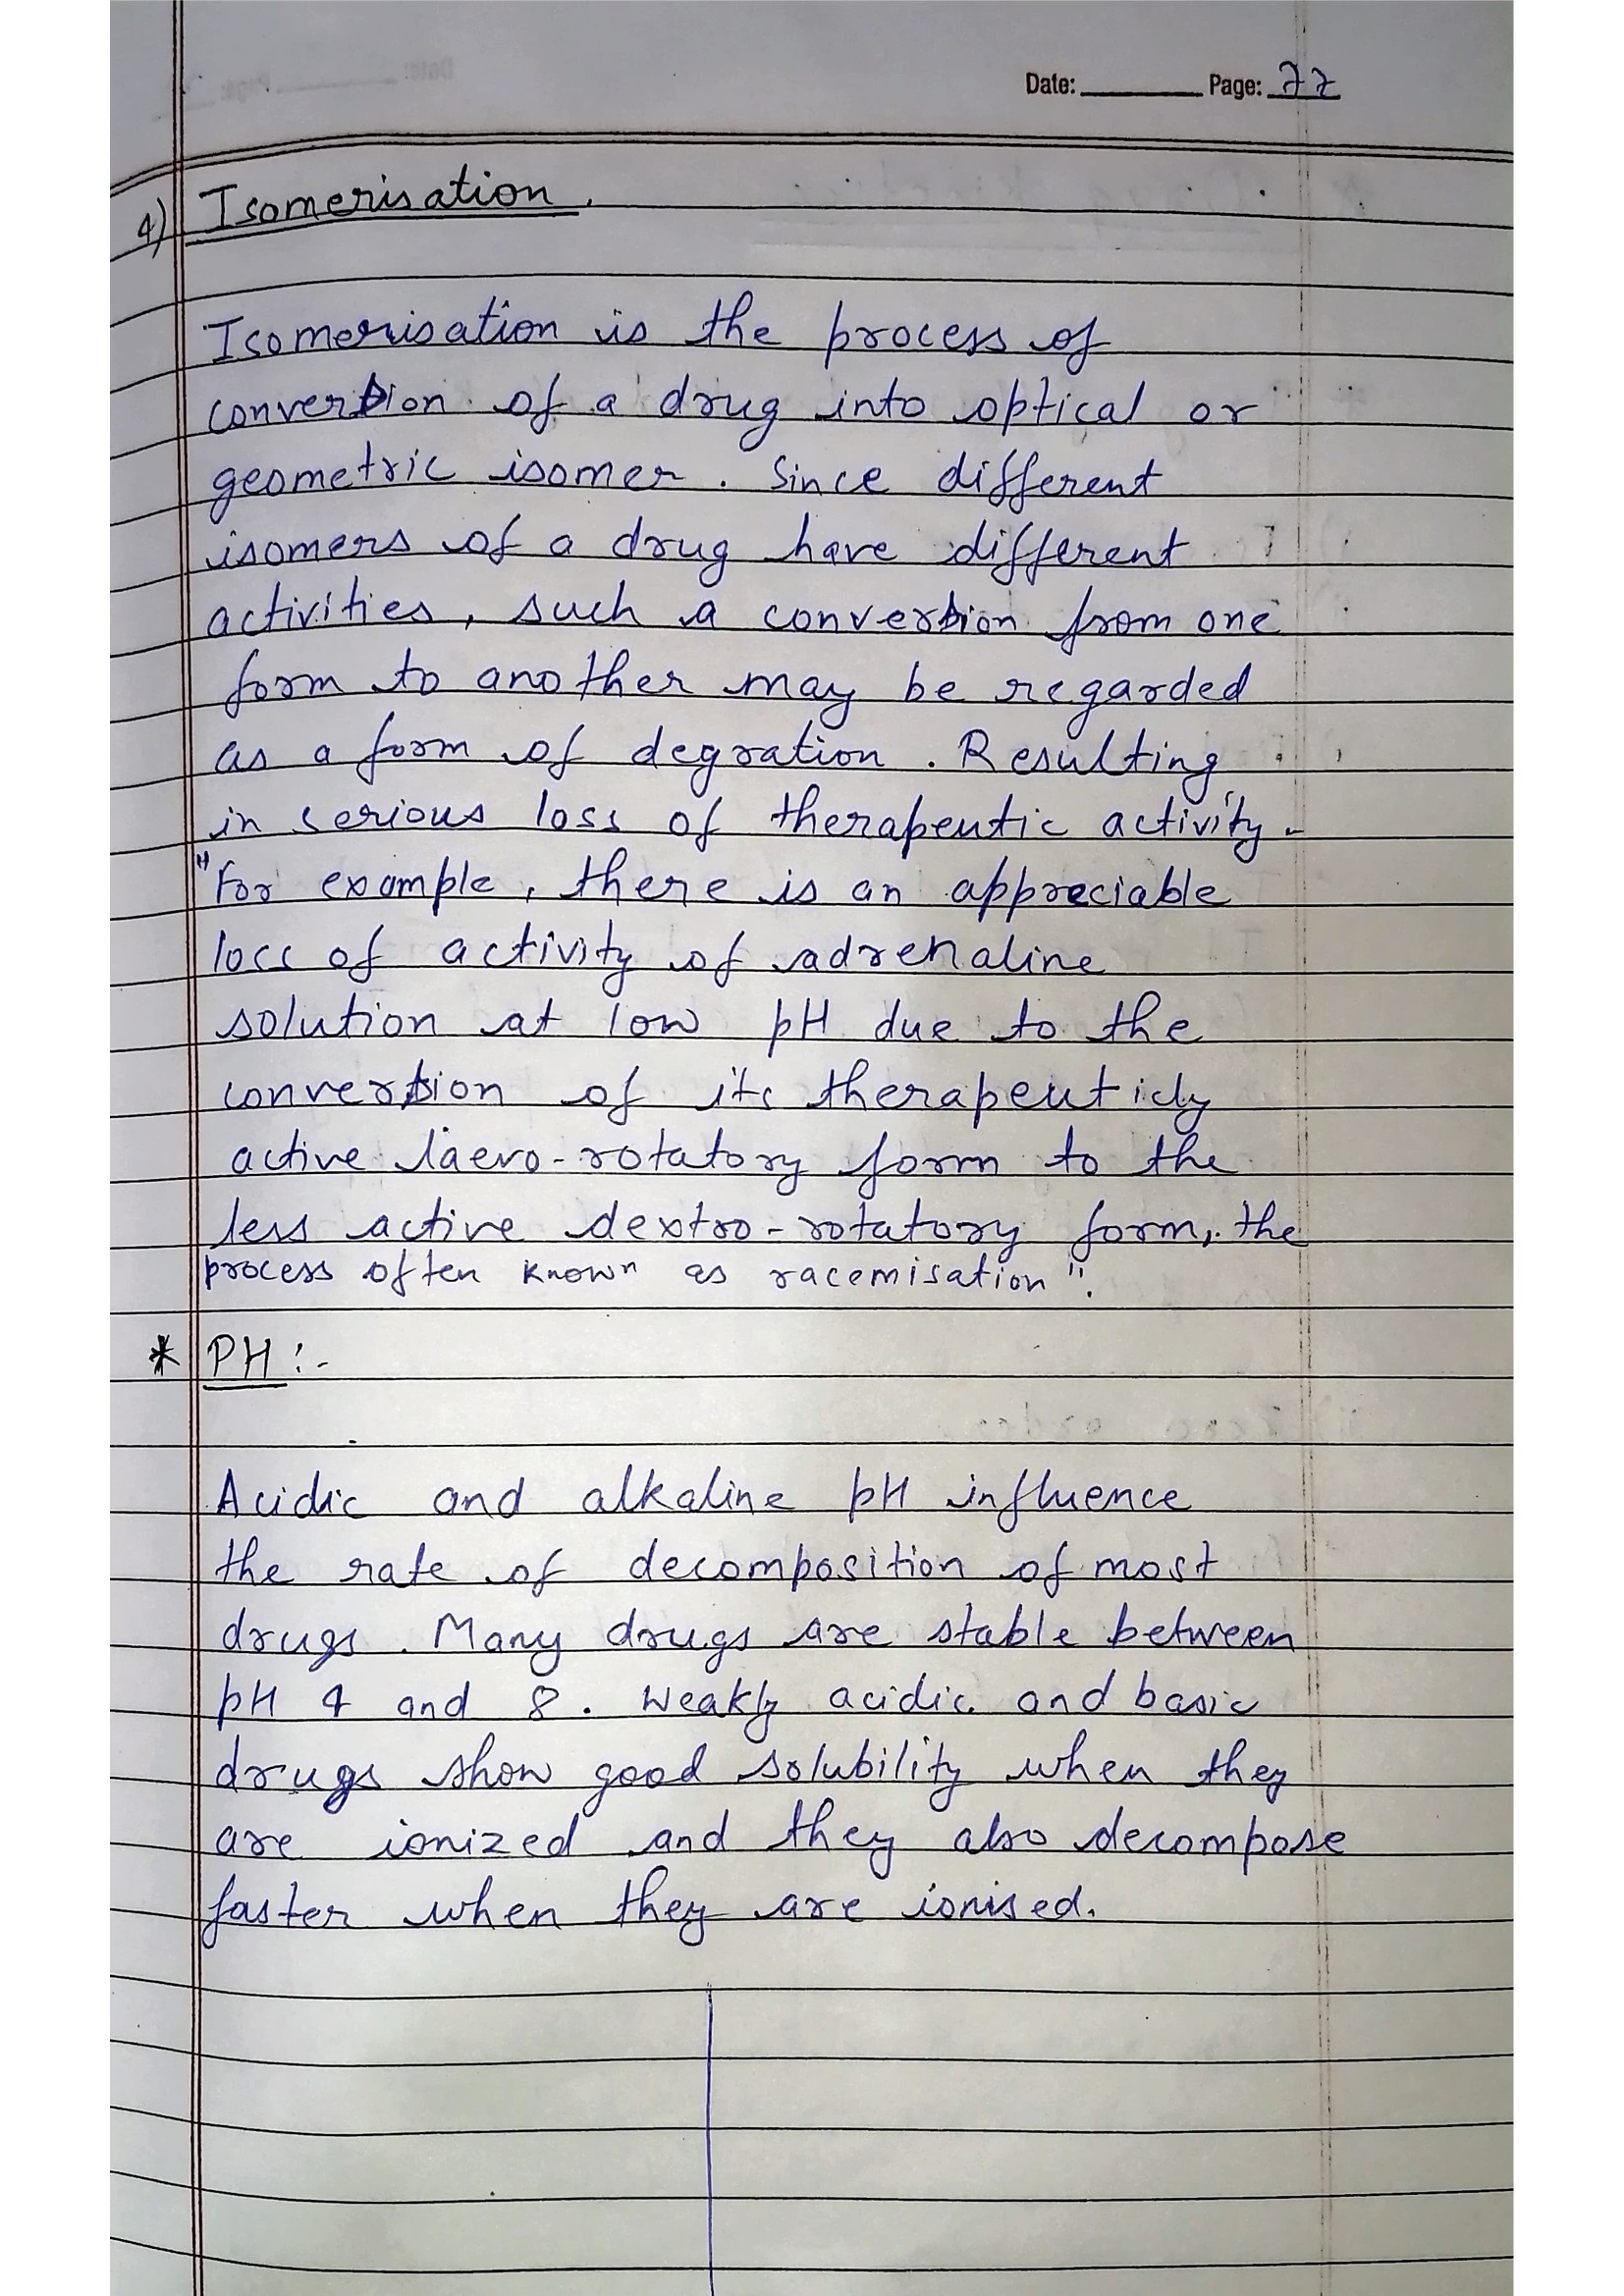 Date: Page: 77
4) Isomerisation.
Isomerisation is the process of
conversion of a drug into optical or
geometric isomer. Since different
isomers of a drug have different
activities, such a conversion from one
form to another may be regarded
as a form of degration. Resulting
in serious loss of therapeutic activity.
"For example, there is an appreciable
loss of activity of adrenaline
solution at low pH due to the
conversion of its therapeuticly
active laevo-rotatory form to the
less active dextro-rotatory form, the
process often known as racemisation".
* PH :-
Acidic and alkaline pH influence
the rate of decomposition of most
drugs. Many drugs are stable between
pH 4 and 8. Weakly acidic and basic
drugs show good solubility when they
are ionized and they also decompose
faster when they are ionised.